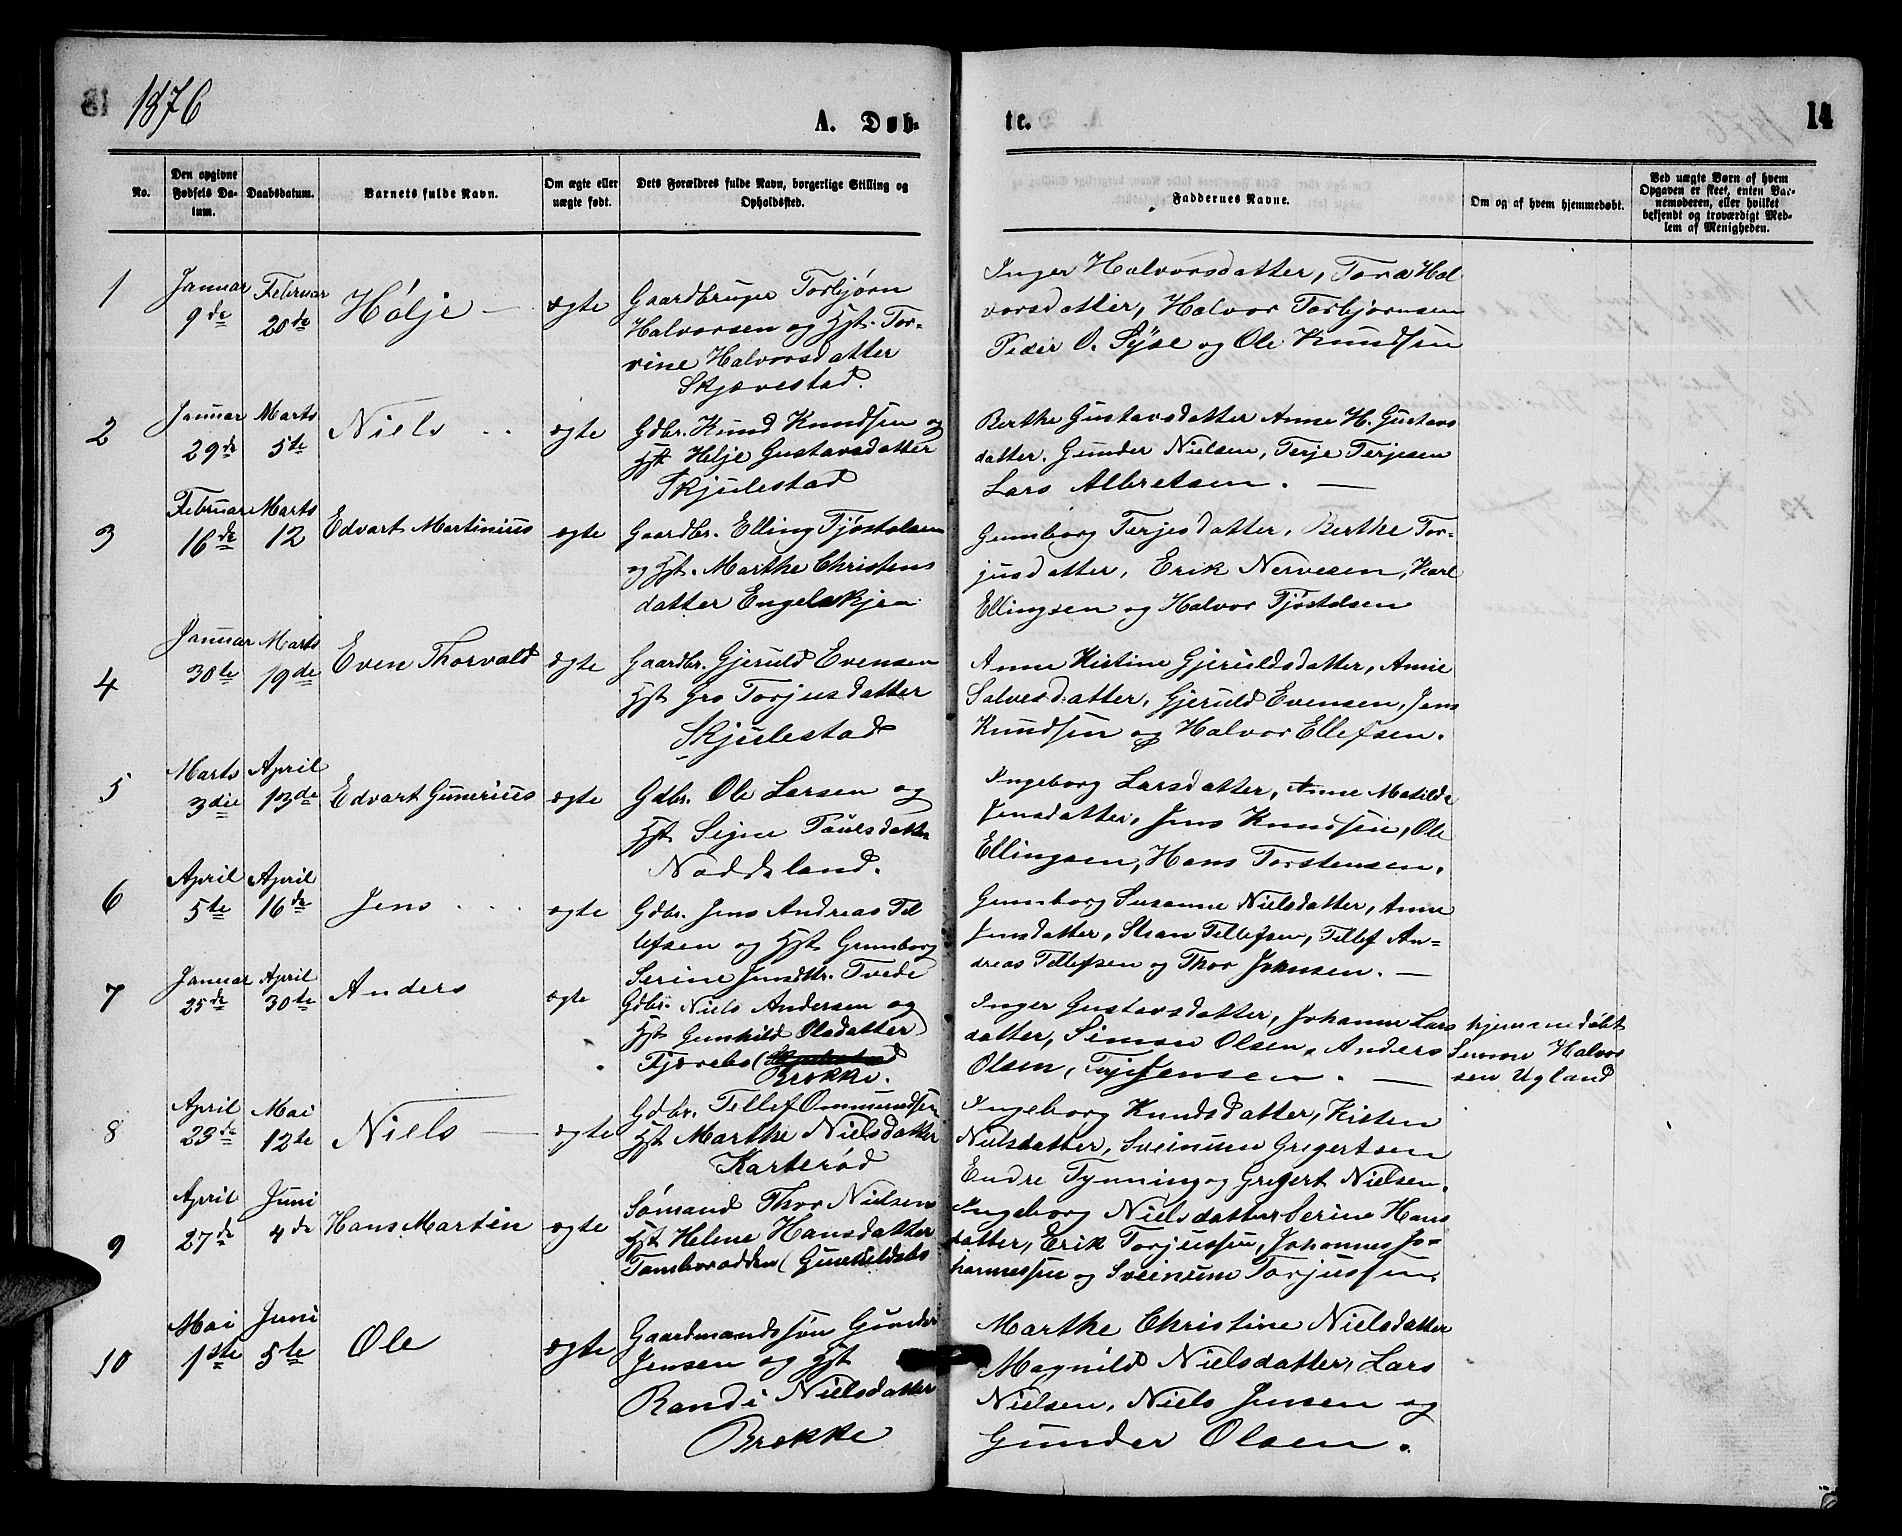 1876
A. Døb-
te.
14
No.
Den opgivne Fødsels Da-
tum.
Daabsdatum.
Barnets fulde Navn.
Om ægte eller
uægte født.
Dets Forældres fulde Navn, borgerlige Stilling og
Opholdssted.
Faddernes Navne.
Om og af hvem hjemmedøbt.
Ved uægte Børn af hvem
Opgaven er skeet, enten Bar-
nemoderen, eller hvilket
bekjendt og troværdigt Med-
lem af Menigheden.
1
Januar
9de
Februar
20de
Hølje
ægte
Gaardbruger Torbjørn
Halvorsen og Hst. Tor-
vine Halvorsdatter
Skjævestad.
Inger Halvorsdatter, Tora Hal
vorsdatter, Halvor Torbjørnsen
Peder O. Syse og Ole Knudsen
2
Januar
29de
Marts
5te
Niels
ægte
Gdbr. Knud Knudsen og
Hst Helje Gustavsdatter
Skjulestad
Berthe Gustavsdatter Anne H. Gustavs
datter. Gunder Nielsen, Terje Terjesen
Lars Albretsen.
3
Februar
16de
Marts
12
Edvart Martinius
ægte
Gaardbr. Elling Tjøstolsen
og Hst. Marthe Christens
datter Engelskjen
Gunborg Terjesdatter, Berthe Tor-
jusdatter, Erik Nervesen, Karl
Ellingsen og Halvor Tjøstolsen
4
Januar
30te
Marts
19de
Even Thorvald
ægte
Gaardbr. Gjeruld Evensen
Hst Gro Torjusdatter
Skjulestad
Anne Kistine Gjeruldsdatter, Anne
Salvesdatter, Gjeruld Evensen, Jens
Knudsen og Halvor Ellefsen.
5
Marts
3die
April
13de
Edvart Gunerius
ægte
Gdbr. Ole Larsen og
Hst Signe Paulsdatter
Noddeland.
Ingeborg Larsdatter, Anne Matilde
Jensdatter, Jens Knudsen, Ole
Ellingsen, Hans Torstensen.
6
April
5te
April
16de
Jens
ægte
Gdbr. Jens Andreas Tel
lefsen og Hst Gunborg
Serine Jensdtr. Tvede
Gunborg Susanne Nielsdatter, Anne
Jensdatter, Stian Tellefsen, Tellef An-
dreas Tellefsen og Thor Johnsen.
7
Januar
25de
April
30te
Anders
ægte
Gdbr. Niels Andersen og
Hst Gunhild Olsdatter
Fjærebo (
Brekke.
Inger Gustavsdatter, Johanne Lars
datter, Simon Olsen, Anders
Olsen, Terje Jensen.
hjemmedøbt
Halvor
sen Ugland
8
April
23de
Mai
12te
Niels
ægte
Gdbr. Tellef Ommundsen
Hst Marthe Nielsdatter
Karterød
Ingeborg Knudsdatter, Kisten
Nielsdatter, Sveinum Gregertsen
Endre Tynning og Gregert Nielsen.
9
April
27de
Juni
4de
Hans Martin
ægte
Sømand Thor Nielsen
Hst Helene Hansdatter
Tamborodden (Gunhildsbo
Ingeborg Nielsdatter Serine Hans
datter, Erik Torjussen, Johannes Jo-
hannessen og Sveinum Torjussen.
10
Mai
1ste
Juni
5te
Ole
ægte
Gaardmandssøn Gunder
Jensen og Hst
Randi Nielsdatter
Brekke
Marthe Christine Nielsdatter
Magnild Nielsdatter, Lars
Nielsen, Niels Jensen og
Gunder Olsen.